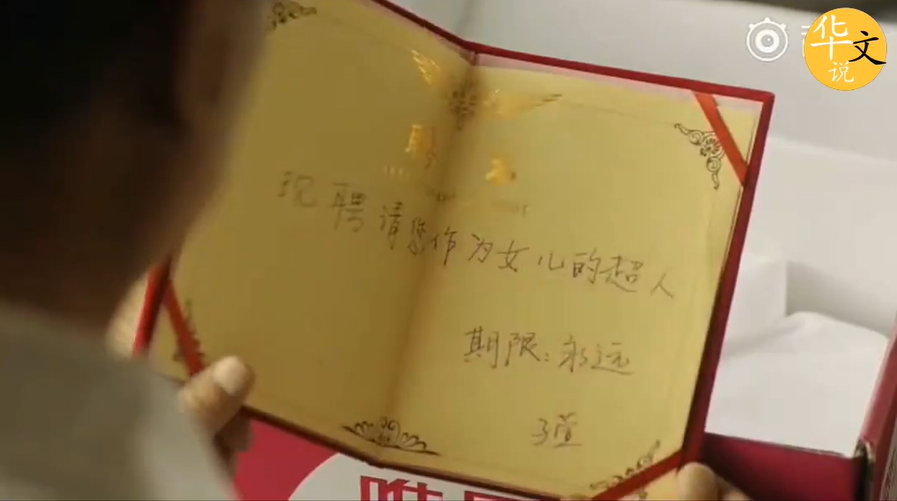 华文说
聘书
现聘请您作为女儿的超人
期限:永远
子萱
唯品